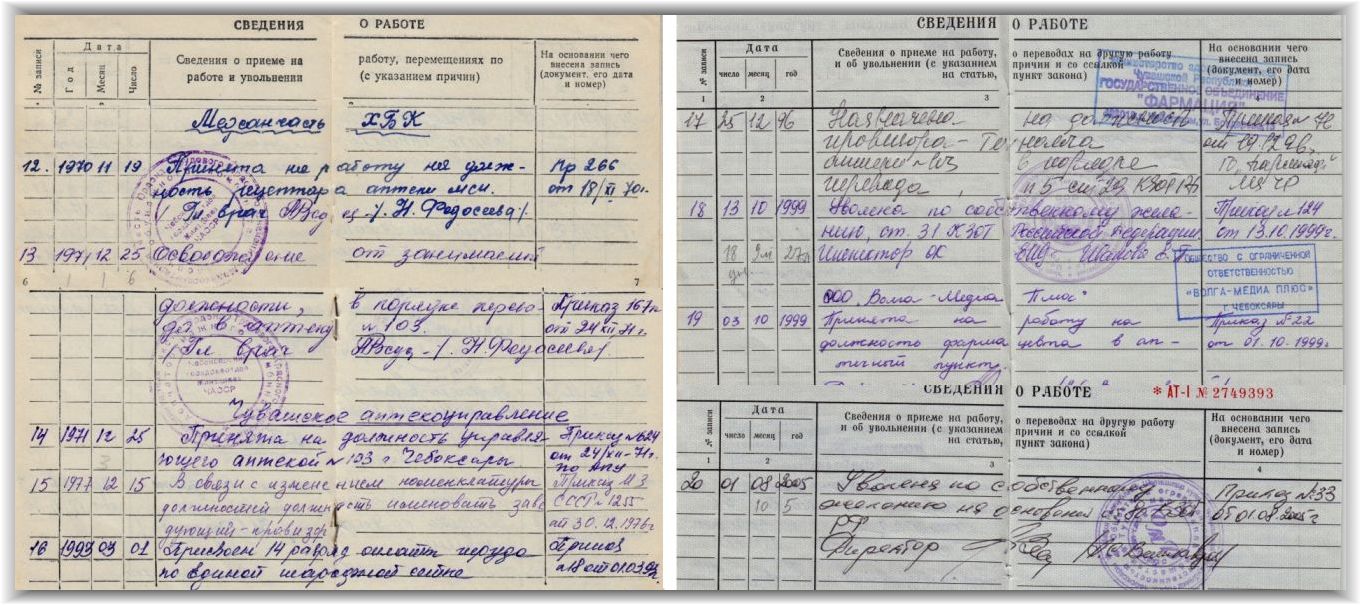 СВЕДЕНИЯ О РАБОТЕ
№ записи
Дата
Год
Месяц
Число
Сведения о приеме на работу, перемещениях по
работе и увольнении (с указанием причин)
На основании чего
внесена запись
(документ, его дата
и номер)
Медсанчасть ХБК
12. 1970 11 19 Принята на работу на долж- Пр 266
ность рецептара аптеки мсч. от 18/XI 70г.
Гл. врач /Н. Федосеева/
13 1971 12 25 Освобождение от занимаемой
6 7
должности, в порядке перево- Приказ 167к
да в аптеку №103. от 24 XII 71г.
/Гл врач /. Н. Федосеева/
Чувашское аптекоуправление
14 1971 12 25 Принята на должность управля- Приказ №624
ющего аптекой №103 г. Чебоксары от 24/XII-71г.
по АПУ
15 1977 12 15 В связи с изменением номенклатуры Приказ МЗ
должностей должность именовать заве СССР №1255
дующий-провизор от 30.12.1976г
16 1993 03 01 Присвоен 14 разряд оплаты труда Приказ
по единой тарифной сетке №18 от 01.03.93
СВЕДЕНИЯ О РАБОТЕ
№ записи
Дата
число месяц год
Сведения о приеме на работу, о переводах на другую работу
и об увольнении (с указанием причин и со ссылкой
на статью, пункт закона)
На основании чего
внесена запись
(документ, его дата
и номер)
1 2 3 4
ГОСУДАРСТВЕННОЕ ОБЪЕДИНЕНИЕ
"ФАРМАЦИЯ"
17 25 12 96 Назначена на должность Приказ
провизора-Технолога от 19.12.96.
в порядке
перевода п 5 ст 29 КЗОТ РФ
18 13 10 1999 Уволена по собственному жела- Приказ №124
нию, ст. 31 КЗОТ Российской Федерации от 13.10.1999г.
Инспектор ОК
ОБЩЕСТВО С ОГРАНИЧЕННОЙ
ОТВЕТСТВЕННОСТЬЮ
«ВОЛГА-МЕДИА ПЛЮС»
г. ЧЕБОКСАРЫ
ООО „Волга-Медиа Плюс"
19 03 10 1999 Принята на работу на Приказ №22
должность фармацевта в ап- от 01.10.1999г
течный пункт.
СВЕДЕНИЯ О РАБОТЕ * АТ-I № 2749393
№ записи
Дата
число месяц год
Сведения о приеме на работу, о переводах на другую работу
и об увольнении (с указанием причин и со ссылкой
на статью, пункт закона)
На основании чего
внесена запись
(документ, его дата
и номер)
1 2 3 4
20 01 08 2005 Уволена по собственному Приказ №33
желанию на основании от 01.08.2005г
РФ
Директор